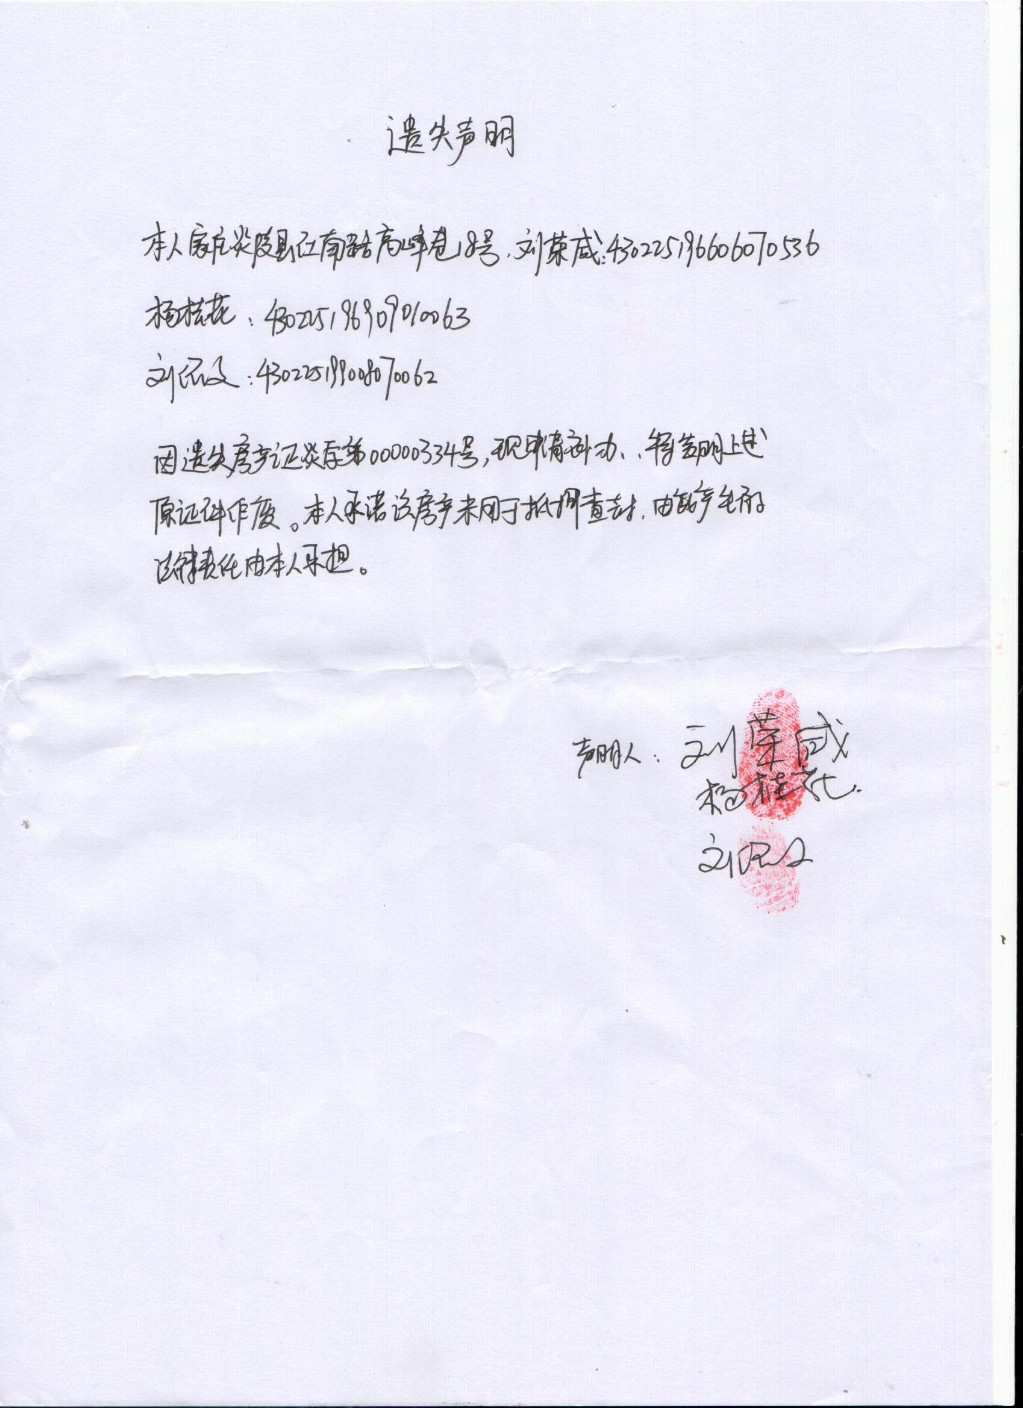 遗失声明
本人家住炎陵县江南路高峰巷18号,刘荣咸:430225196606070536
杨桂花:430225196909010063
刘:430225199008070062
因遗失房产证炎房第00000334号,现申请补办、特声明上述
原证件作废。本人承诺该房产未用于抵押查封,由此产生的
法律责任由本人承担。
声明人:刘荣咸
杨桂花.
刘